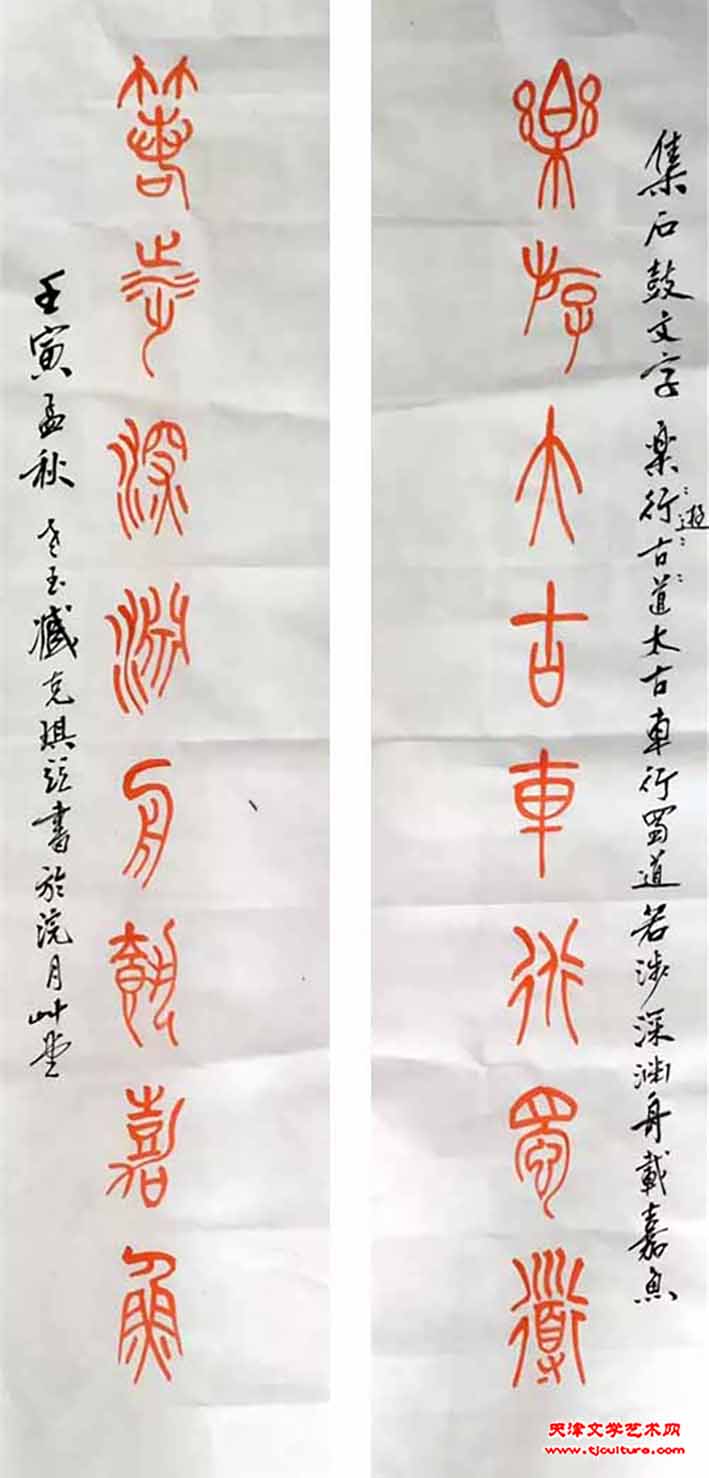 集石鼓文字 楽行古道太古車行蜀道若涉深渊舟載嘉魚
遊
樂斿大古車行蜀道
箸涉深淵舟載嘉魚
壬寅孟秋 臧克琪書於浣月艸堂
天津文学艺术网
www.tjculture.com